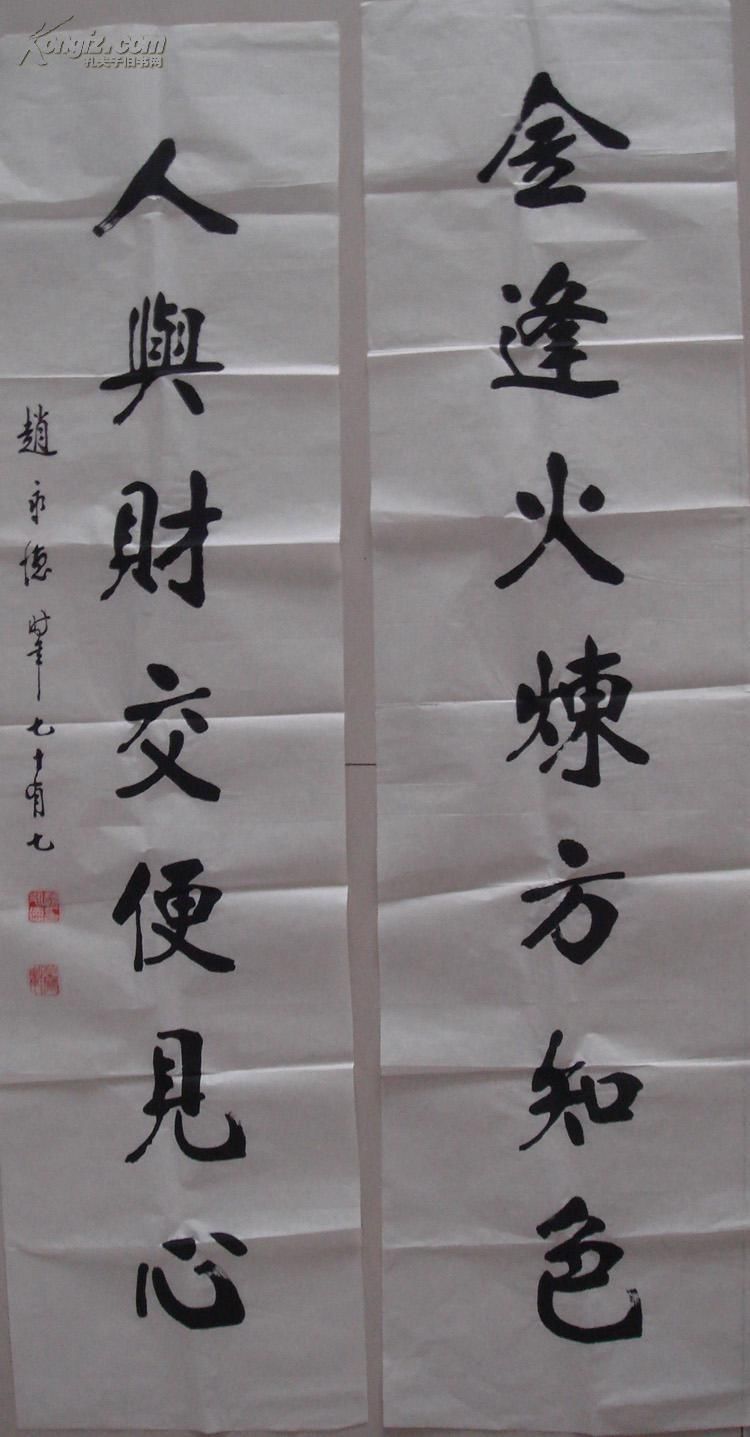 金逢火煉方知色
人與財交便見心
趙永德時年七十有七
Kongfz.com
孔夫子旧书网